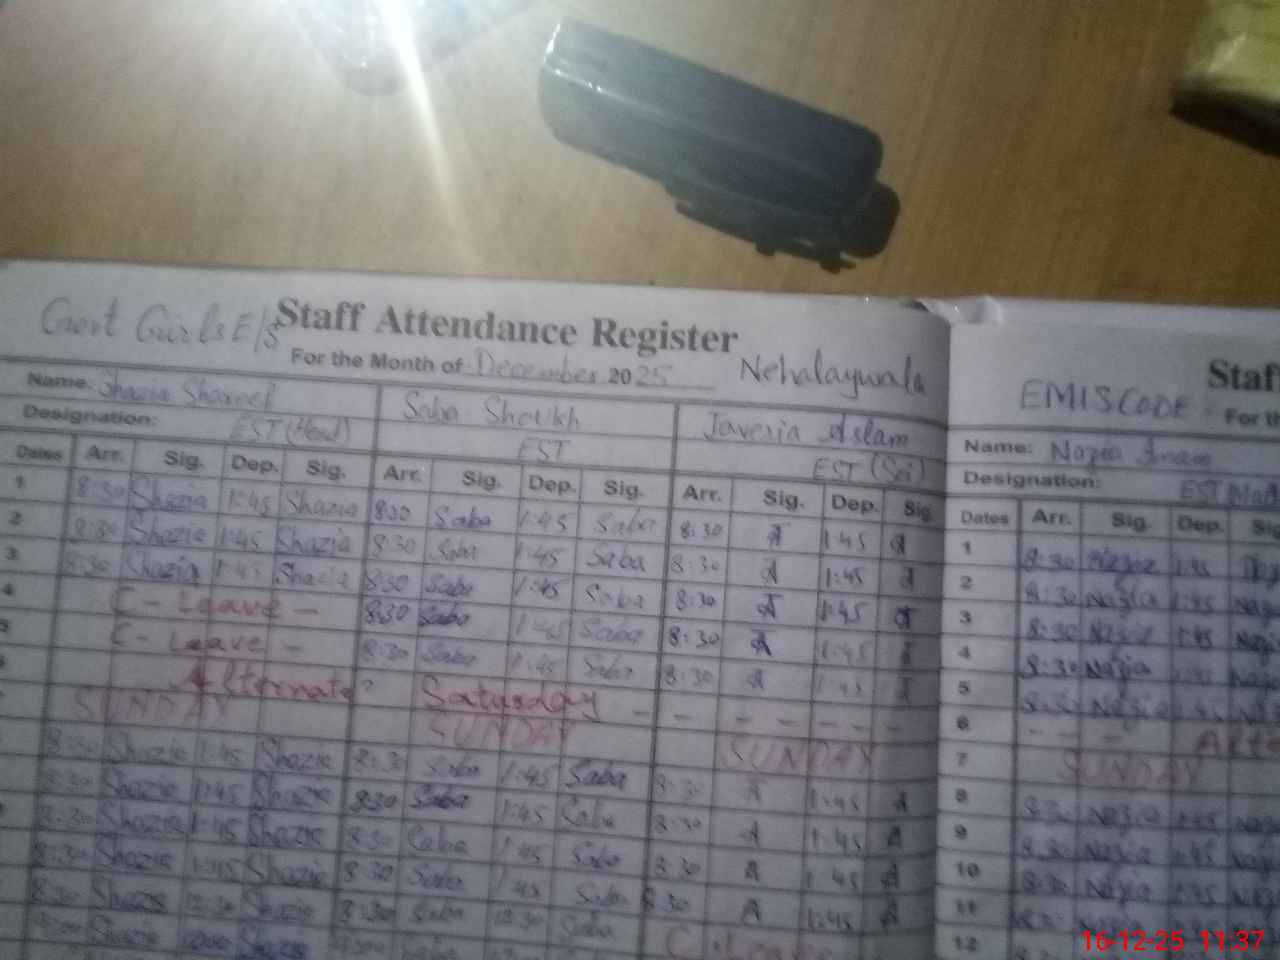 Govt Girls E/S Staff Attendance Register Staf
For the Month of December 2025 Nehalaywala EMISCODE For th
Name: Shazia Shareef Saba Sheikh Javeria Aslam Name: Nazia Imam
Designation: EST (Head) EST EST (Sci) Designation: EST Mat
Dates Arr. Sig. Dep. Sig. Arr. Sig. Dep. Sig. Arr. Sig. Dep. Sig. Dates Arr. Sig. Dep. Sig
1 8:30 Shazia 1:45 Shazia 8:30 Saba 1:45 Saba 8:30 A 1:45 A 1 8:30 Nazia 1:45
2 8:30 Shazia 1:45 Shazia 8:30 Saba 1:45 Saba 8:30 A 1:45 A 2 8:30 Nazia 1:45
3 8:30 Shazia 1:45 Shazia 8:30 Saba 1:45 Saba 8:30 A 1:45 A 3 8:30 Nazia 1:45
4 C - Leave - 8:30 Saba 1:45 Saba 8:30 A 1:45 A 4 8:30 Nazia 1:45
5 C - Leave - 8:30 Saba 1:45 Saba 8:30 A 1:45 A 5 8:30 Nazia 1:45
Alternate Saturday - - - - - - - 6 - - -
SUNDAY SUNDAY SUNDAY 7 SUNDAY
8:30 Shazia 1:45 Shazia 8:30 Saba 1:45 Saba 8:30 A 1:45 A 8 8:30 Nazia 1:45
8:30 Shazia 1:45 Shazia 8:30 Saba 1:45 Saba 8:30 A 1:45 A 9 8:30 Nazia 1:45
8:30 Shazia 1:45 Shazia 8:30 Saba 1:45 Saba 8:30 A 1:45 A 10 8:30 Nazia 1:45
8:30 Shazia 1:45 Shazia 8:30 Saba 1:45 Saba 8:30 A 1:45 A 11 Nazia
8:30 Shazia 12:30 Shazia 8:30 Saba 12:30 Saba 12
Shazia Shazia
16-12-25 11:37